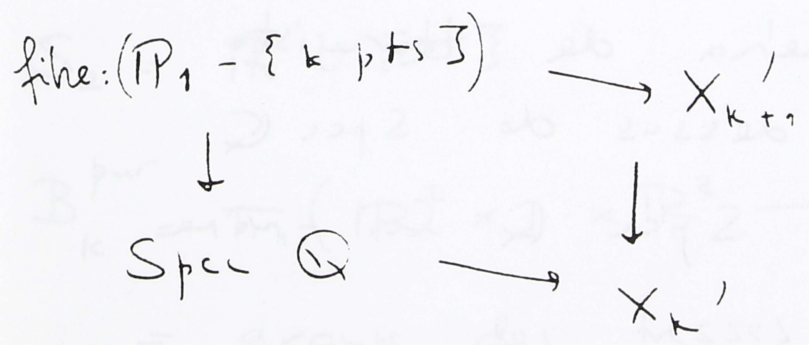 fibre: (ℙ₁ - {k pts}) → X'ₖ₊₁
↓ ↓
Spec ℚ → Xₖ'